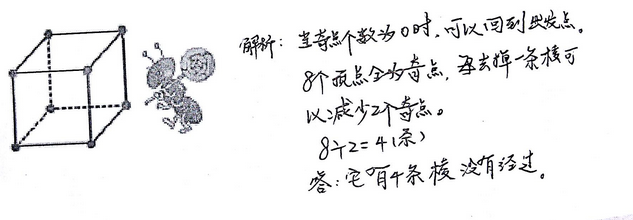 解析：当奇点个数为0时，可以回到出发点。
8个顶点全为奇点，每去掉一条棱可
以减少2个奇点。
8÷2=4(条)
答：它有4条棱没有经过。